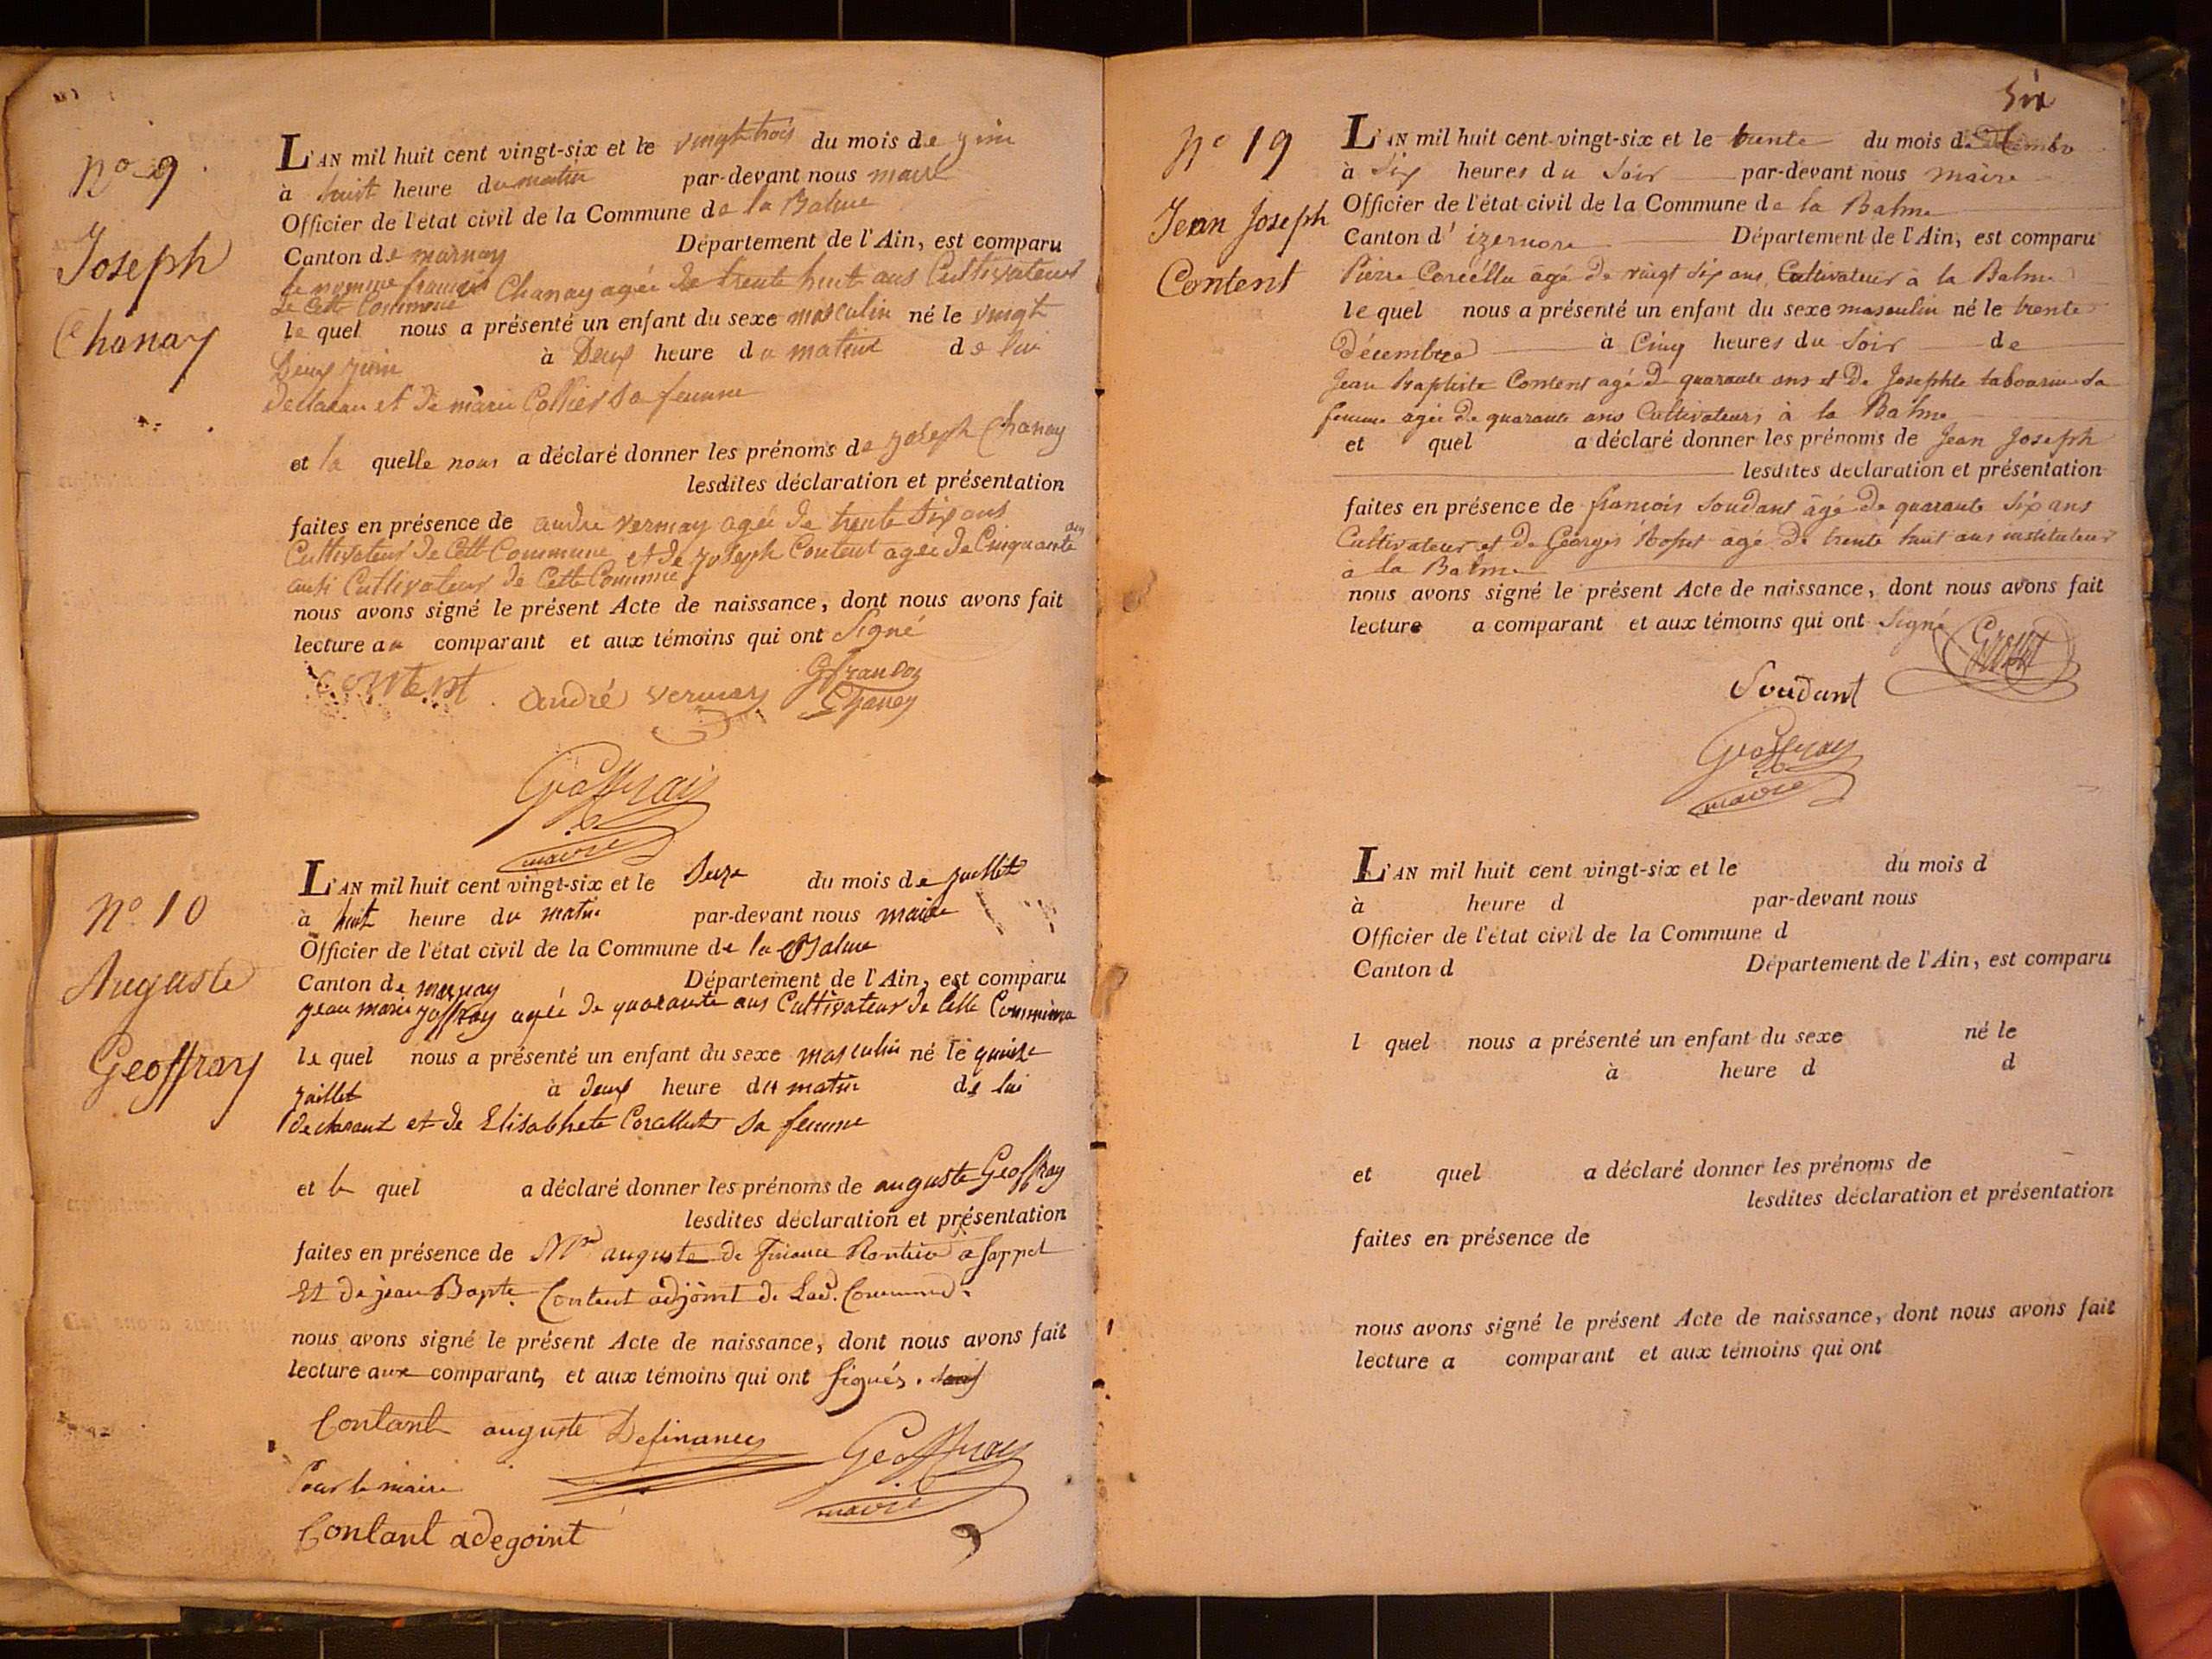 No 9
Joseph
Chanay
L'AN mil huit cent vingt-six et le vingt trois du mois de juin
à huit heure du matin par-devant nous maire
Officier de l'état civil de la Commune de la Balme
Canton de marnay Département de l'Ain, est comparu
le nommé francois Chanay agée de trente huit ans Cultivateur
de Cette Commune
le quel nous a présenté un enfant du sexe masculin né le vingt
Deux juin à Deux heure du matin de lui
declarau et de marie Collier sa femme
et la quelle nous a déclaré donner les prénoms de joseph Chanay
lesdites déclaration et présentation
faites en présence de andre vermay agée de trente six ans
Cultivateur de Cett Commune et de joseph Content agée de Cinquante ans
ausi Cultivateur de Cette Commune
nous avons signé le présent Acte de naissance, dont nous avons fait
lecture au comparant et aux témoins qui ont Signé
content andré vermay
Chaney
Geoffray
maire
No 10
Auguste
Geoffray
L'AN mil huit cent vingt-six et le du mois de juillet
à huit heure du matin par-devant nous maire
Officier de l'état civil de la Commune de la Balme
Canton de marnay Département de l'Ain, est comparu
jean marie joffray agée de quarante ans Cultivateur de Cette Commune
le quel nous a présenté un enfant du sexe masculin né le quinze
juillet à deux heure du matin de lui
declarant et de Elisabhete sa femme
et le quel a déclaré donner les prénoms de auguste Geoffray
lesdites déclaration et présentation
faites en présence de Mr auguste de finance Rentier a
Et de jean Bapte. Content adjoint de Lad. Commune.
nous avons signé le présent Acte de naissance, dont nous avons fait
lecture aux comparants, et aux témoins qui ont signés.
Contant auguste Definance Geoffray
Pour le maire maire
Contant adegoint
six
No 19
Jean Joseph
Content
L'AN mil huit cent vingt-six et le trente du mois de décembre
à Six heures du Soir par-devant nous maire
Officier de l'état civil de la Commune de la Balme
Canton d' izernore Département de l'Ain, est comparu
Pierre agé de vingt six ans, Cultivateur à la Balme
le quel nous a présenté un enfant du sexe masculin né le trente
décembre à Cinq heures du Soir de
Jean Baptiste Content agé de quarante ans et de Josephte tabourin sa
femme agée de quarante ans Cultivateurs à la Balme
et quel a déclaré donner les prénoms de Jean Joseph
lesdites déclaration et présentation
faites en présence de françois Soudant âgé de quarante Six ans
Cultivateur et de Georges agé de trente huit ans instituteur
à la Balme
nous avons signé le présent Acte de naissance, dont nous avons fait
lecture a comparant et aux témoins qui ont Signé
Soudant
Geoffray
maire
L'AN mil huit cent vingt-six et le du mois d
à heure d par-devant nous
Officier de l'état civil de la Commune d
Canton d Département de l'Ain, est comparu
l quel nous a présenté un enfant du sexe né le
à heure d d
et quel a déclaré donner les prénoms de
lesdites déclaration et présentation
faites en présence de
nous avons signé le présent Acte de naissance, dont nous avons fait
lecture a comparant et aux témoins qui ont